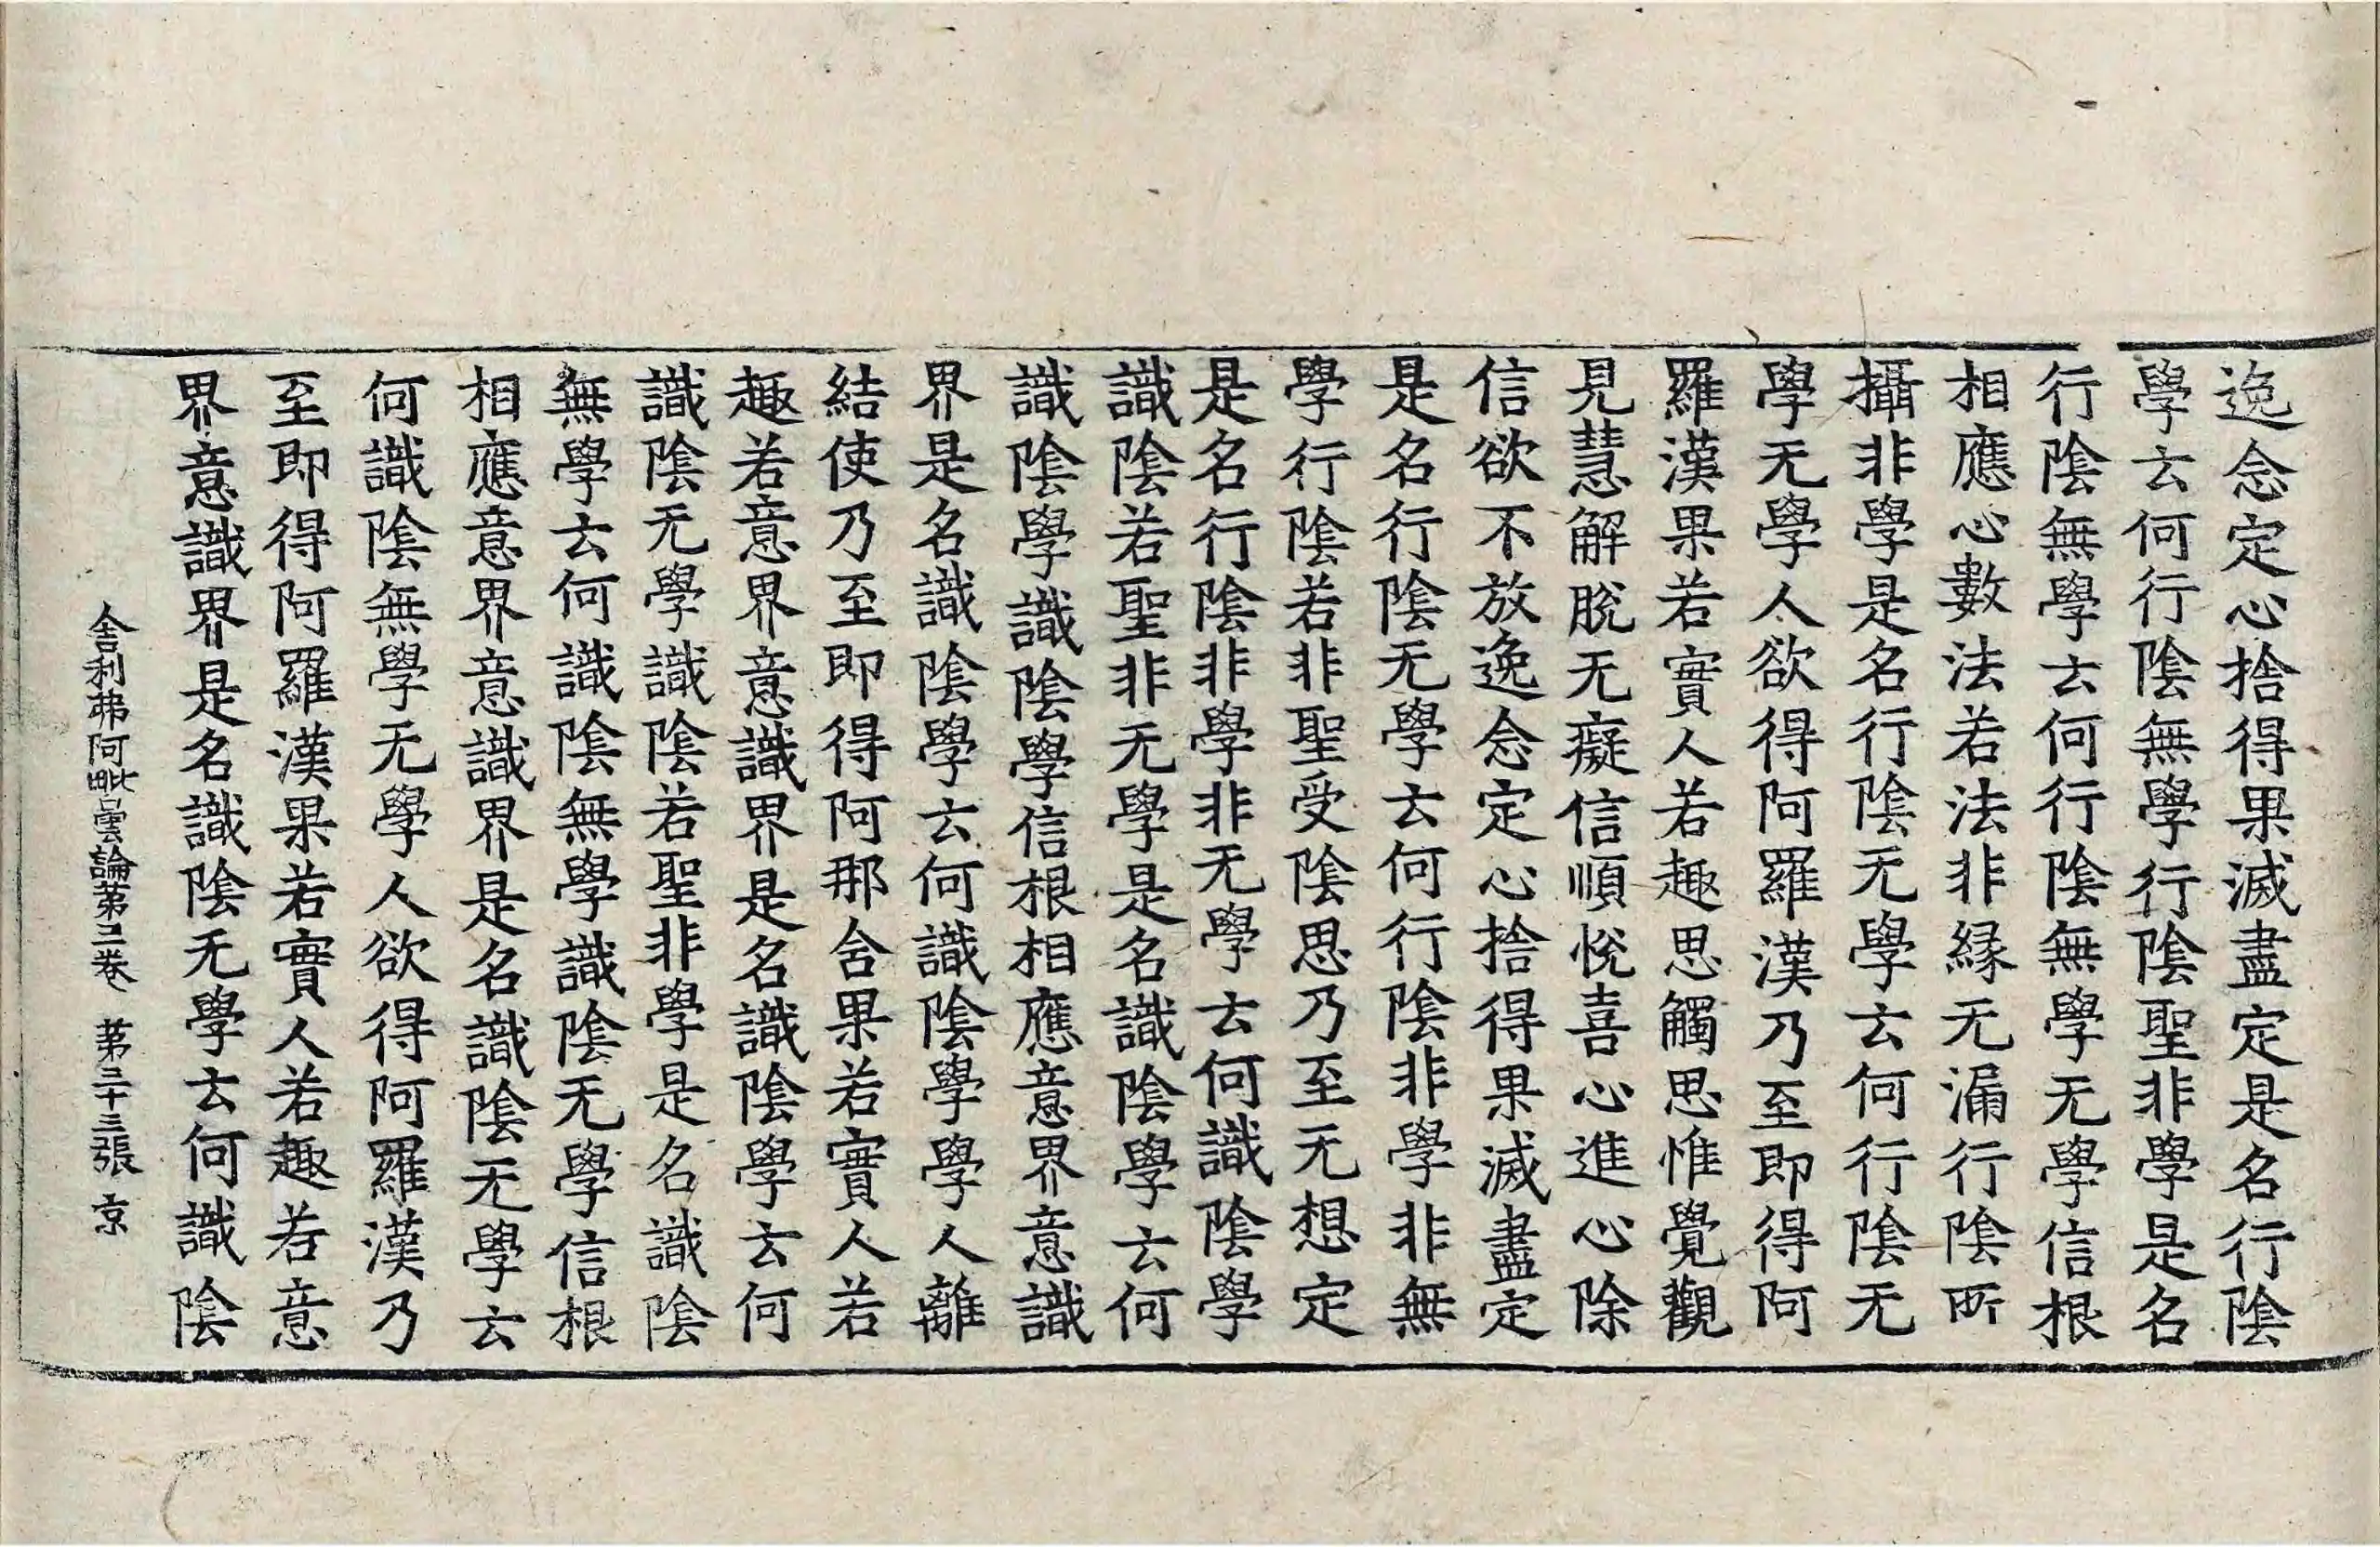 逸念定心捨得果滅盡定是名行陰
學云何行陰無學行陰聖非學是名
行陰無學云何行陰無學无學信根
相應心數法若法非緣无漏行陰所
攝非學是名行陰无學云何行陰无
學无學人欲得阿羅漢乃至即得阿
羅漢果若實人若趣思觸思惟覺觀
見慧解脫无癡信順悅喜心進心除
信欲不放逸念定心捨得果滅盡定
是名行陰无學云何行陰非學非無
學行陰若非聖受陰思乃至无想定
是名行陰非學非无學云何識陰學
識陰若聖非无學是名識陰學云何
識陰學識陰學信根相應意界意識
界是名識陰學云何識陰學學人離
結使乃至即得阿那含果若實人若
趣若意界意識界是名識陰學云何
識陰无學識陰若聖非學是名識陰
無學云何識陰無學識陰无學信根
相應意界意識界是名識陰无學云
何識陰無學无學人欲得阿羅漢乃
至即得阿羅漢果若實人若趣若意
界意識界是名識陰无學云何識陰
舍利弗阿毗曇論第二卷 第二十三張 京